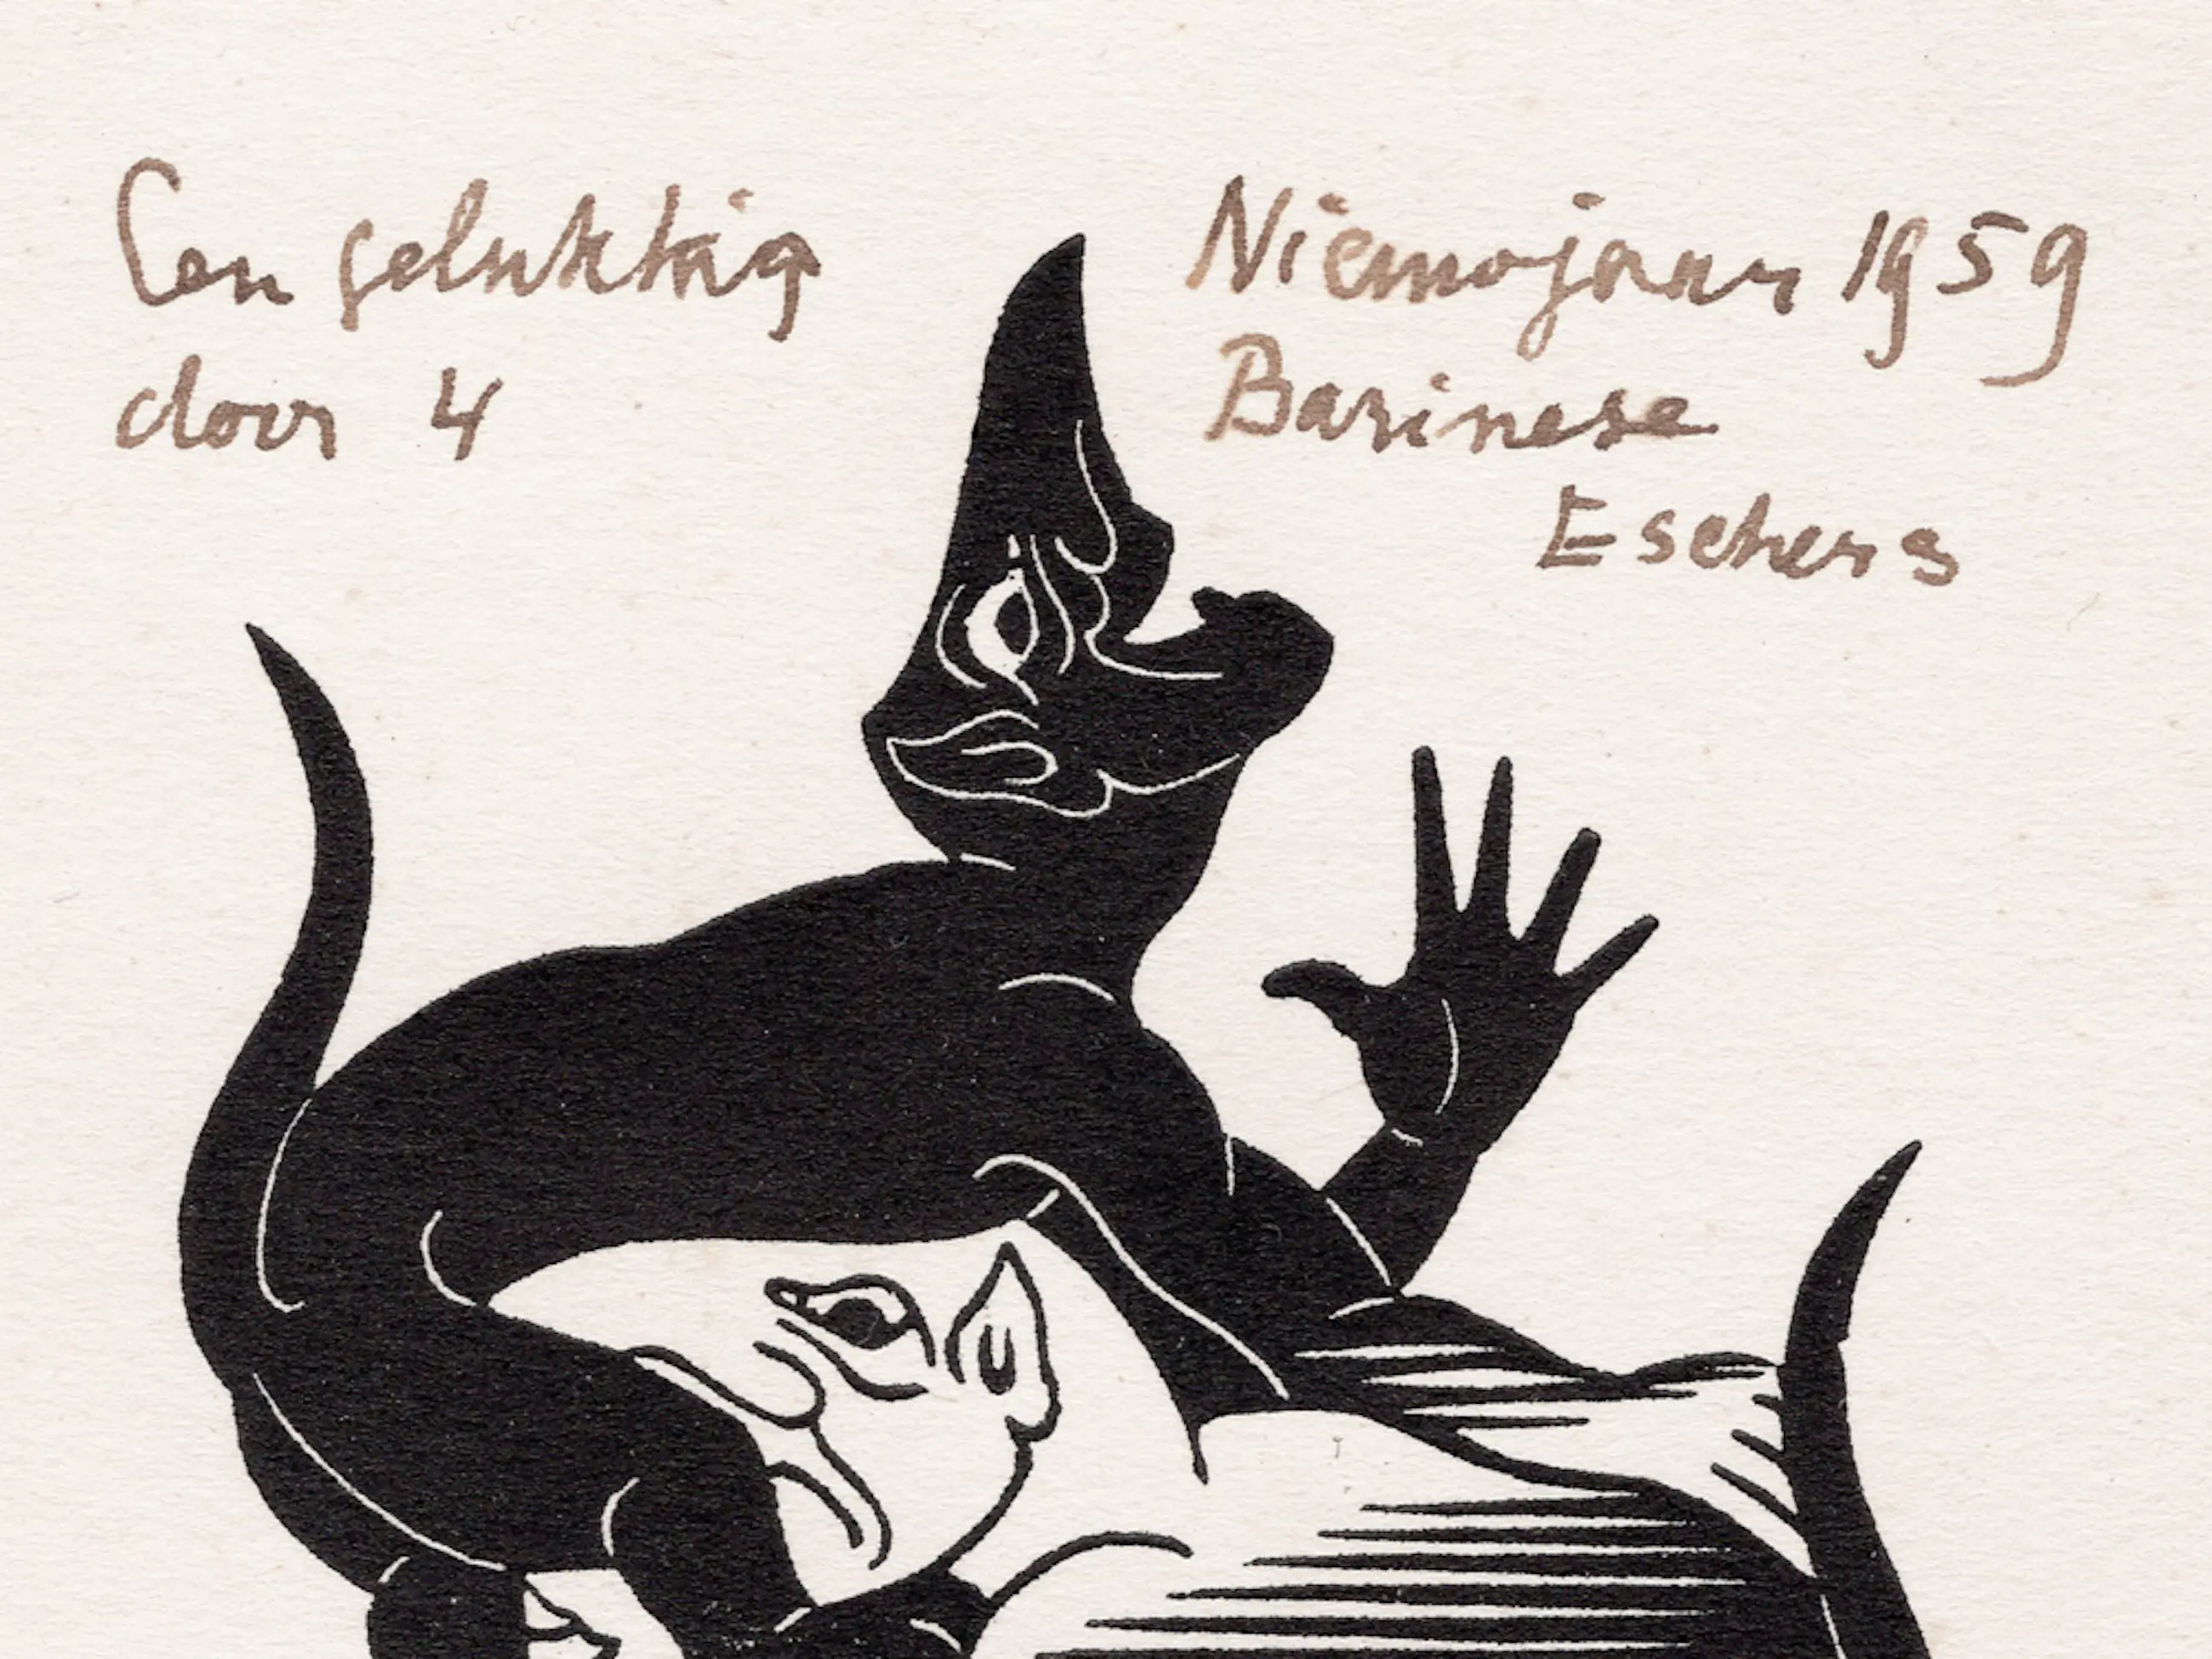 Een gelukkig Nieuwjaar 1959
door 4 Barinese
Eschers